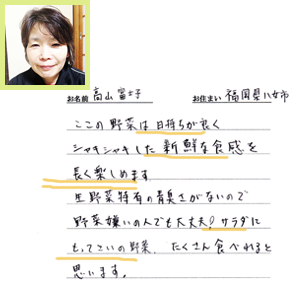 お名前 高山富士子 お住まい 福岡県八女市
ここの野菜は日持ちが良く
シャキシャキした新鮮な食感を
長く楽しめます
生野菜特有の青臭さがないので
野菜嫌いの人でも大丈夫！サラダに
もってこいの野菜、たくさん食べれると
思います。